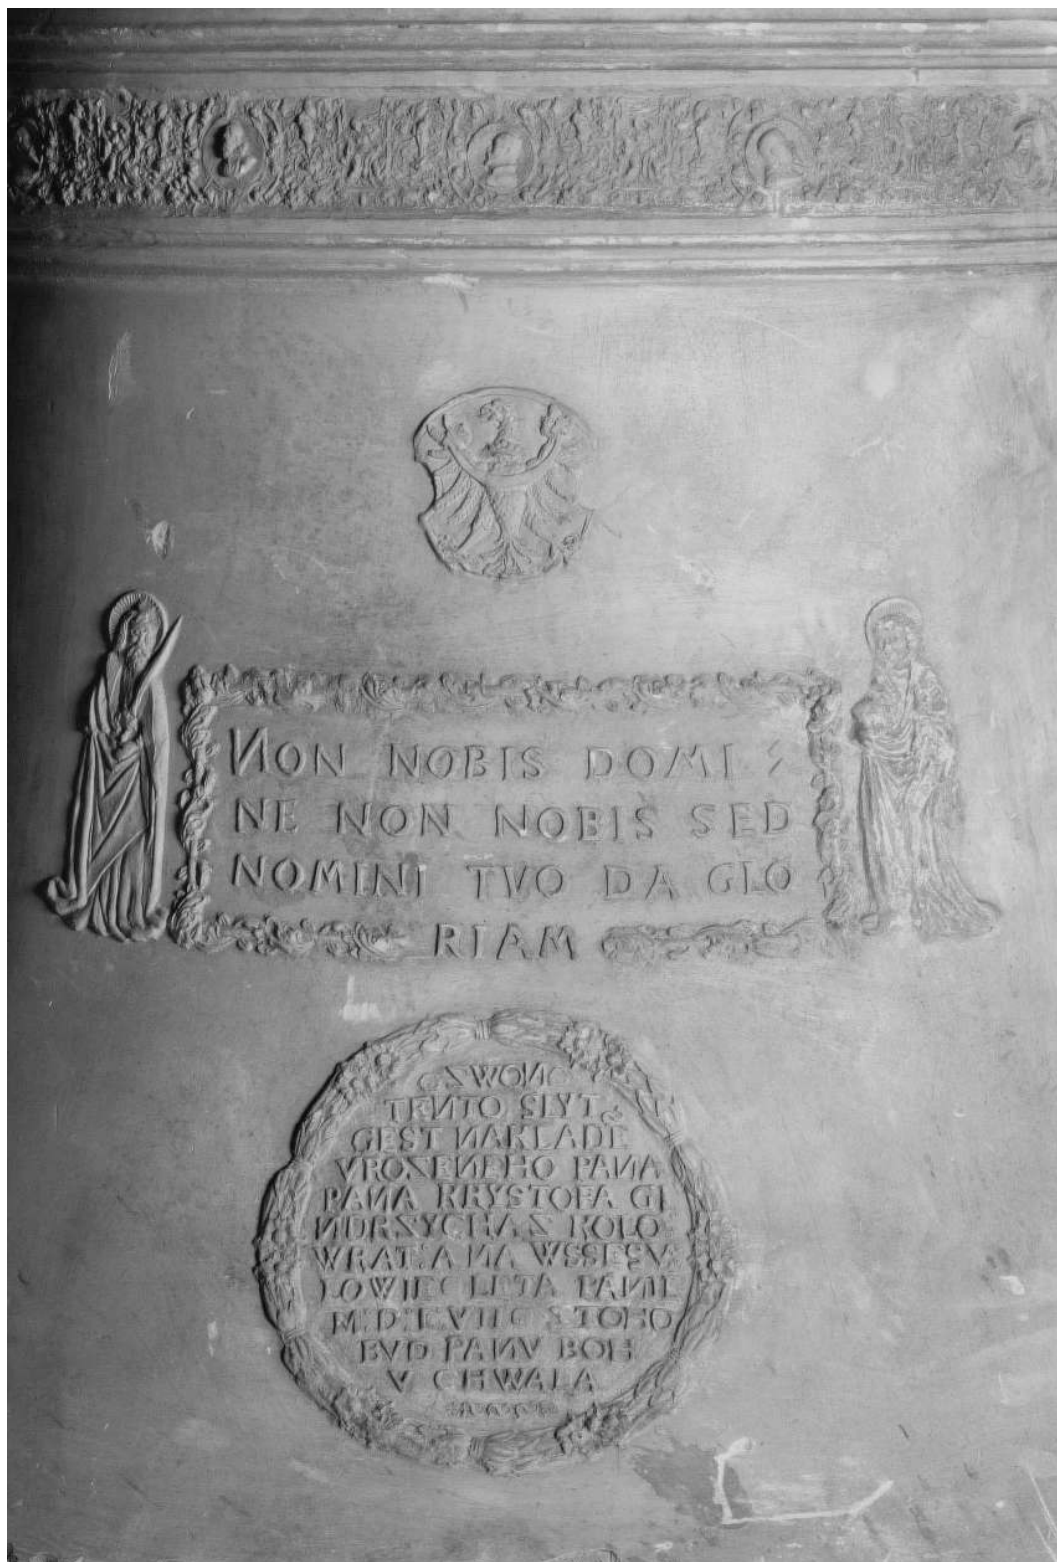 NON NOBIS DOMI
NE NON NOBIS SED
NOMINI TVO DA GLO
RIAM
CZWON
TENTO SLYT
GEST NAKLADE
VROZENEHO PANA
PANA KRYSTOFA GI
NDRZYCHA Z KOLO
WRAT A NA WSSESV
LOWIE LETA PANIE
BVD PANV BOH
V CHWALA